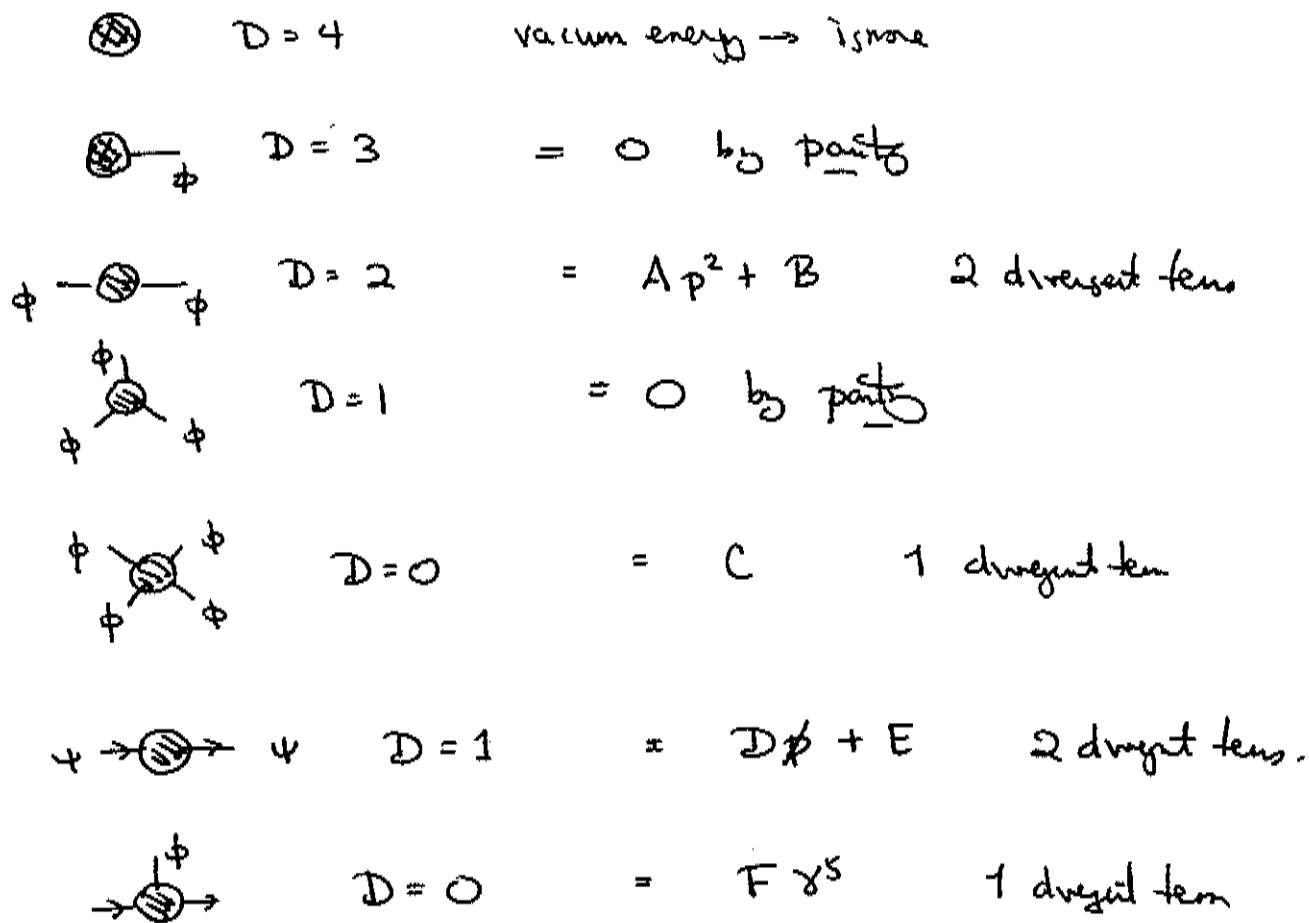 D = 4 vacum energy → ignore
ϕ D = 3 = 0 by parity
ϕ ϕ D = 2 = A p² + B 2 divergent terms
ϕ ϕ ϕ D = 1 = 0 by parity
ϕ ϕ ϕ ϕ D = 0 = C 1 divergent term
ψ ψ D = 1 = D p̸ + E 2 divergent terms.
ϕ D = 0 = F γ⁵ 1 divergent term